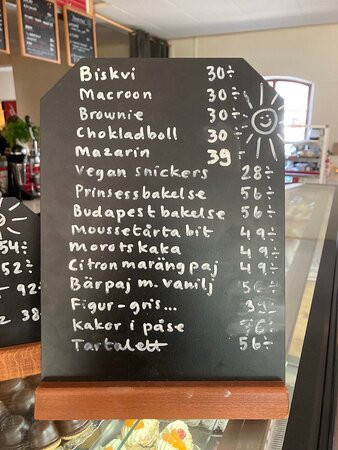 Biskvi 30÷
Macroon 30÷
Brownie 30÷
Chokladboll 30÷
Mazarin 39-
Vegan snickers 28÷
Prinsessbakelse 56÷
Budapestbakelse 56÷
Moussetårta bit 49÷
Morotskaka 49÷
Citron marängpaj 49÷
Bärpaj m. vanilj 56÷
Figur-gris... 39÷
Kakor i påse 76÷
Tartalett 56÷
54÷
52÷
92÷
38